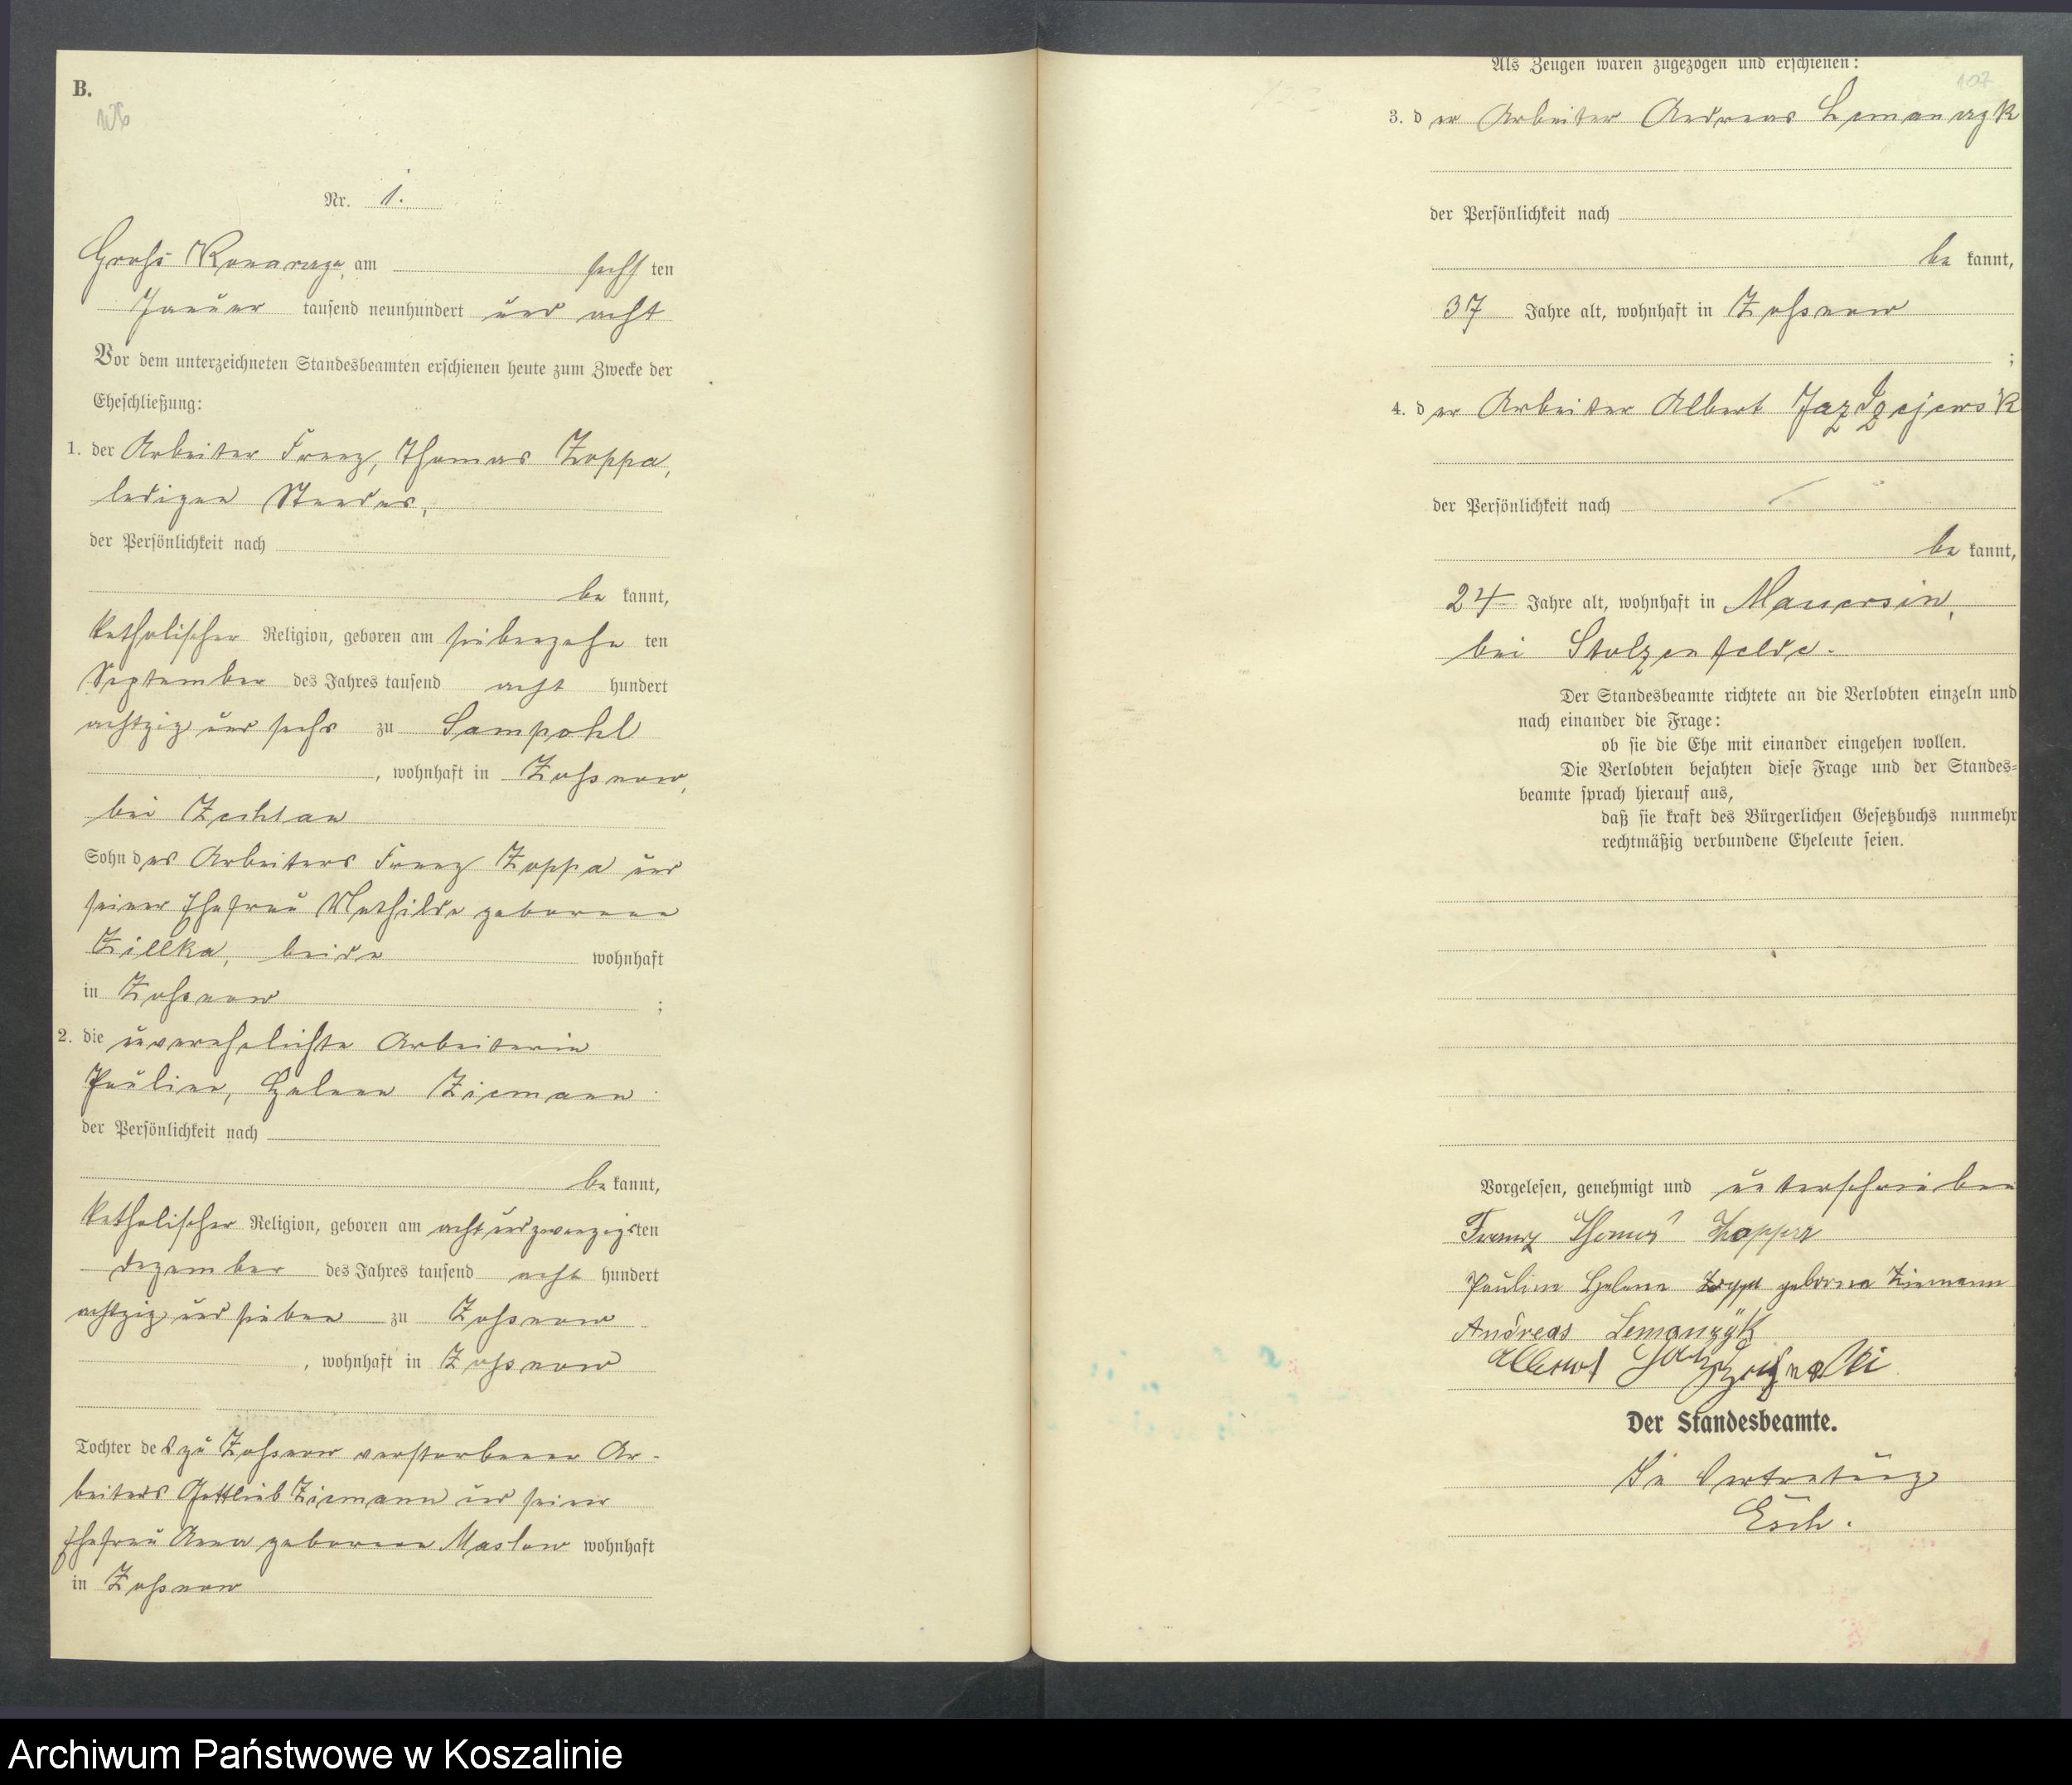 B.
126
Nr. 1.
Gross Konarczyn, am sechs ten
Januar tausend neunhundert und acht
Vor dem unterzeichneten Standesbeamten erschienen heute zum Zwecke der
Eheschließung:
1. der Arbeiter Franz, Thomas Zoppa,
ledigen Standes,
der Persönlichkeit nach
be kannt,
katholischer Religion, geboren am siebenzehn ten
September des Jahres tausend acht hundert
achtzig und sechs zu Sampohl
, wohnhaft in Zossnow,
bei Zechlau
Sohn des Arbeiters Franz Zoppa und
seiner Ehefrau Mathilde geborenen
Zillka, beide wohnhaft
in Zossnow ;
2. die unverehelichte Arbeiterin
Pauline, Helene Ziemann
der Persönlichkeit nach
be kannt,
katholischer Religion, geboren am acht und zwanzigsten
Dezember des Jahres tausend acht hundert
achtzig und sieben zu Zossnow
, wohnhaft in Zossnow
Tochter des zu Zossnow verstorbenen Ar-
beiters Gottlieb Ziemann und seiner
Ehefrau Anna geborenen Maslow wohnhaft
in Zossnow
Als Zeugen waren zugezogen und erschienen:
107
3. der Arbeiter Andreas Lemanczyk
der Persönlichkeit nach
be kannt,
37 Jahre alt, wohnhaft in Zossnow
;
4. der Arbeiter Albert
der Persönlichkeit nach
be kannt,
24 Jahre alt, wohnhaft in Mauersin,
bei Stolzenfelde.
Der Standesbeamte richtete an die Verlobten einzeln und
nach einander die Frage:
ob sie die Ehe mit einander eingehen wollen.
Die Verlobten bejahten diese Frage und der Standes=
beamte sprach hierauf aus,
daß sie kraft des Bürgerlichen Gesetzbuchs nunmehr
rechtmäßig verbundene Eheleute seien.
Vorgelesen, genehmigt und unterschrieben
Franz Thomas Zoppa
Pauline Helene Zoppa geborne Ziemann
Andreas Lemanzÿk
Albert
Der Standesbeamte.
In Vertretung
Esch.
Archiwum Państwowe w Koszalinie